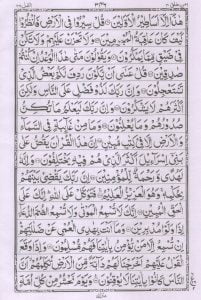 هٰذَاۤ اِلَّاۤ اَسَاطِيْرُ الْاَوَّلِيْنَ ۝ قُلْ سِيْرُوْا فِى الْاَرْضِ فَانْظُرُوْا
كَيْفَ كَانَ عَاقِبَةُ الْمُجْرِمِيْنَ ۝ وَلَا تَحْزَنْ عَلَيْهِمْ وَلَا تَكُنْ
فِىْ ضَيْقٍ مِّمَّا يَمْكُرُوْنَ ۝ وَيَقُوْلُوْنَ مَتٰى هٰذَا الْوَعْدُ اِنْ كُنْتُمْ
صٰدِقِيْنَ ۝ قُلْ عَسٰۤى اَنْ يَّكُوْنَ رَدِفَ لَكُمْ بَعْضُ الَّذِىْ
تَسْتَعْجِلُوْنَ ۝ وَاِنَّ رَبَّكَ لَذُوْ فَضْلٍ عَلَى النَّاسِ وَلٰكِنَّ
اَكْثَرَهُمْ لَا يَشْكُرُوْنَ ۝ وَاِنَّ رَبَّكَ لَيَعْلَمُ مَا تُكِنُّ
صُدُوْرُهُمْ وَمَا يُعْلِنُوْنَ ۝ وَمَا مِنْ غَآئِبَةٍ فِى السَّمَآءِ
وَالْاَرْضِ اِلَّا فِىْ كِتٰبٍ مُّبِيْنٍ ۝ اِنَّ هٰذَا الْقُرْاٰنَ يَقُصُّ عَلٰى
بَنِىْۤ اِسْرَآءِيْلَ اَكْثَرَ الَّذِىْ هُمْ فِيْهِ يَخْتَلِفُوْنَ ۝ وَاِنَّهٗ
لَهُدًى وَّرَحْمَةٌ لِّلْمُؤْمِنِيْنَ ۝ اِنَّ رَبَّكَ يَقْضِىْ بَيْنَهُمْ
بِحُكْمِهٖ وَهُوَ الْعَزِيْزُ الْعَلِيْمُ ۝ فَتَوَكَّلْ عَلَى اللّٰهِ اِنَّكَ عَلَى
الْحَقِّ الْمُبِيْنِ ۝ اِنَّكَ لَا تُسْمِعُ الْمَوْتٰى وَلَا تُسْمِعُ الصُّمَّ الدُّعَآءَ
اِذَا وَلَّوْا مُدْبِرِيْنَ ۝ وَمَاۤ اَنْتَ بِهٰدِى الْعُمْىِ عَنْ ضَلٰلَتِهِمْ اِنْ
تُسْمِعُ اِلَّا مَنْ يُّؤْمِنُ بِاٰيٰتِنَا فَهُمْ مُّسْلِمُوْنَ ۝ وَاِذَا وَقَعَ
الْقَوْلُ عَلَيْهِمْ اَخْرَجْنَا لَهُمْ دَآبَّةً مِّنَ الْاَرْضِ تُكَلِّمُهُمْ اَنَّ
النَّاسَ كَانُوْا بِاٰيٰتِنَا لَا يُوْقِنُوْنَ ۝ وَيَوْمَ نَحْشُرُ مِنْ كُلِّ اُمَّةٍ